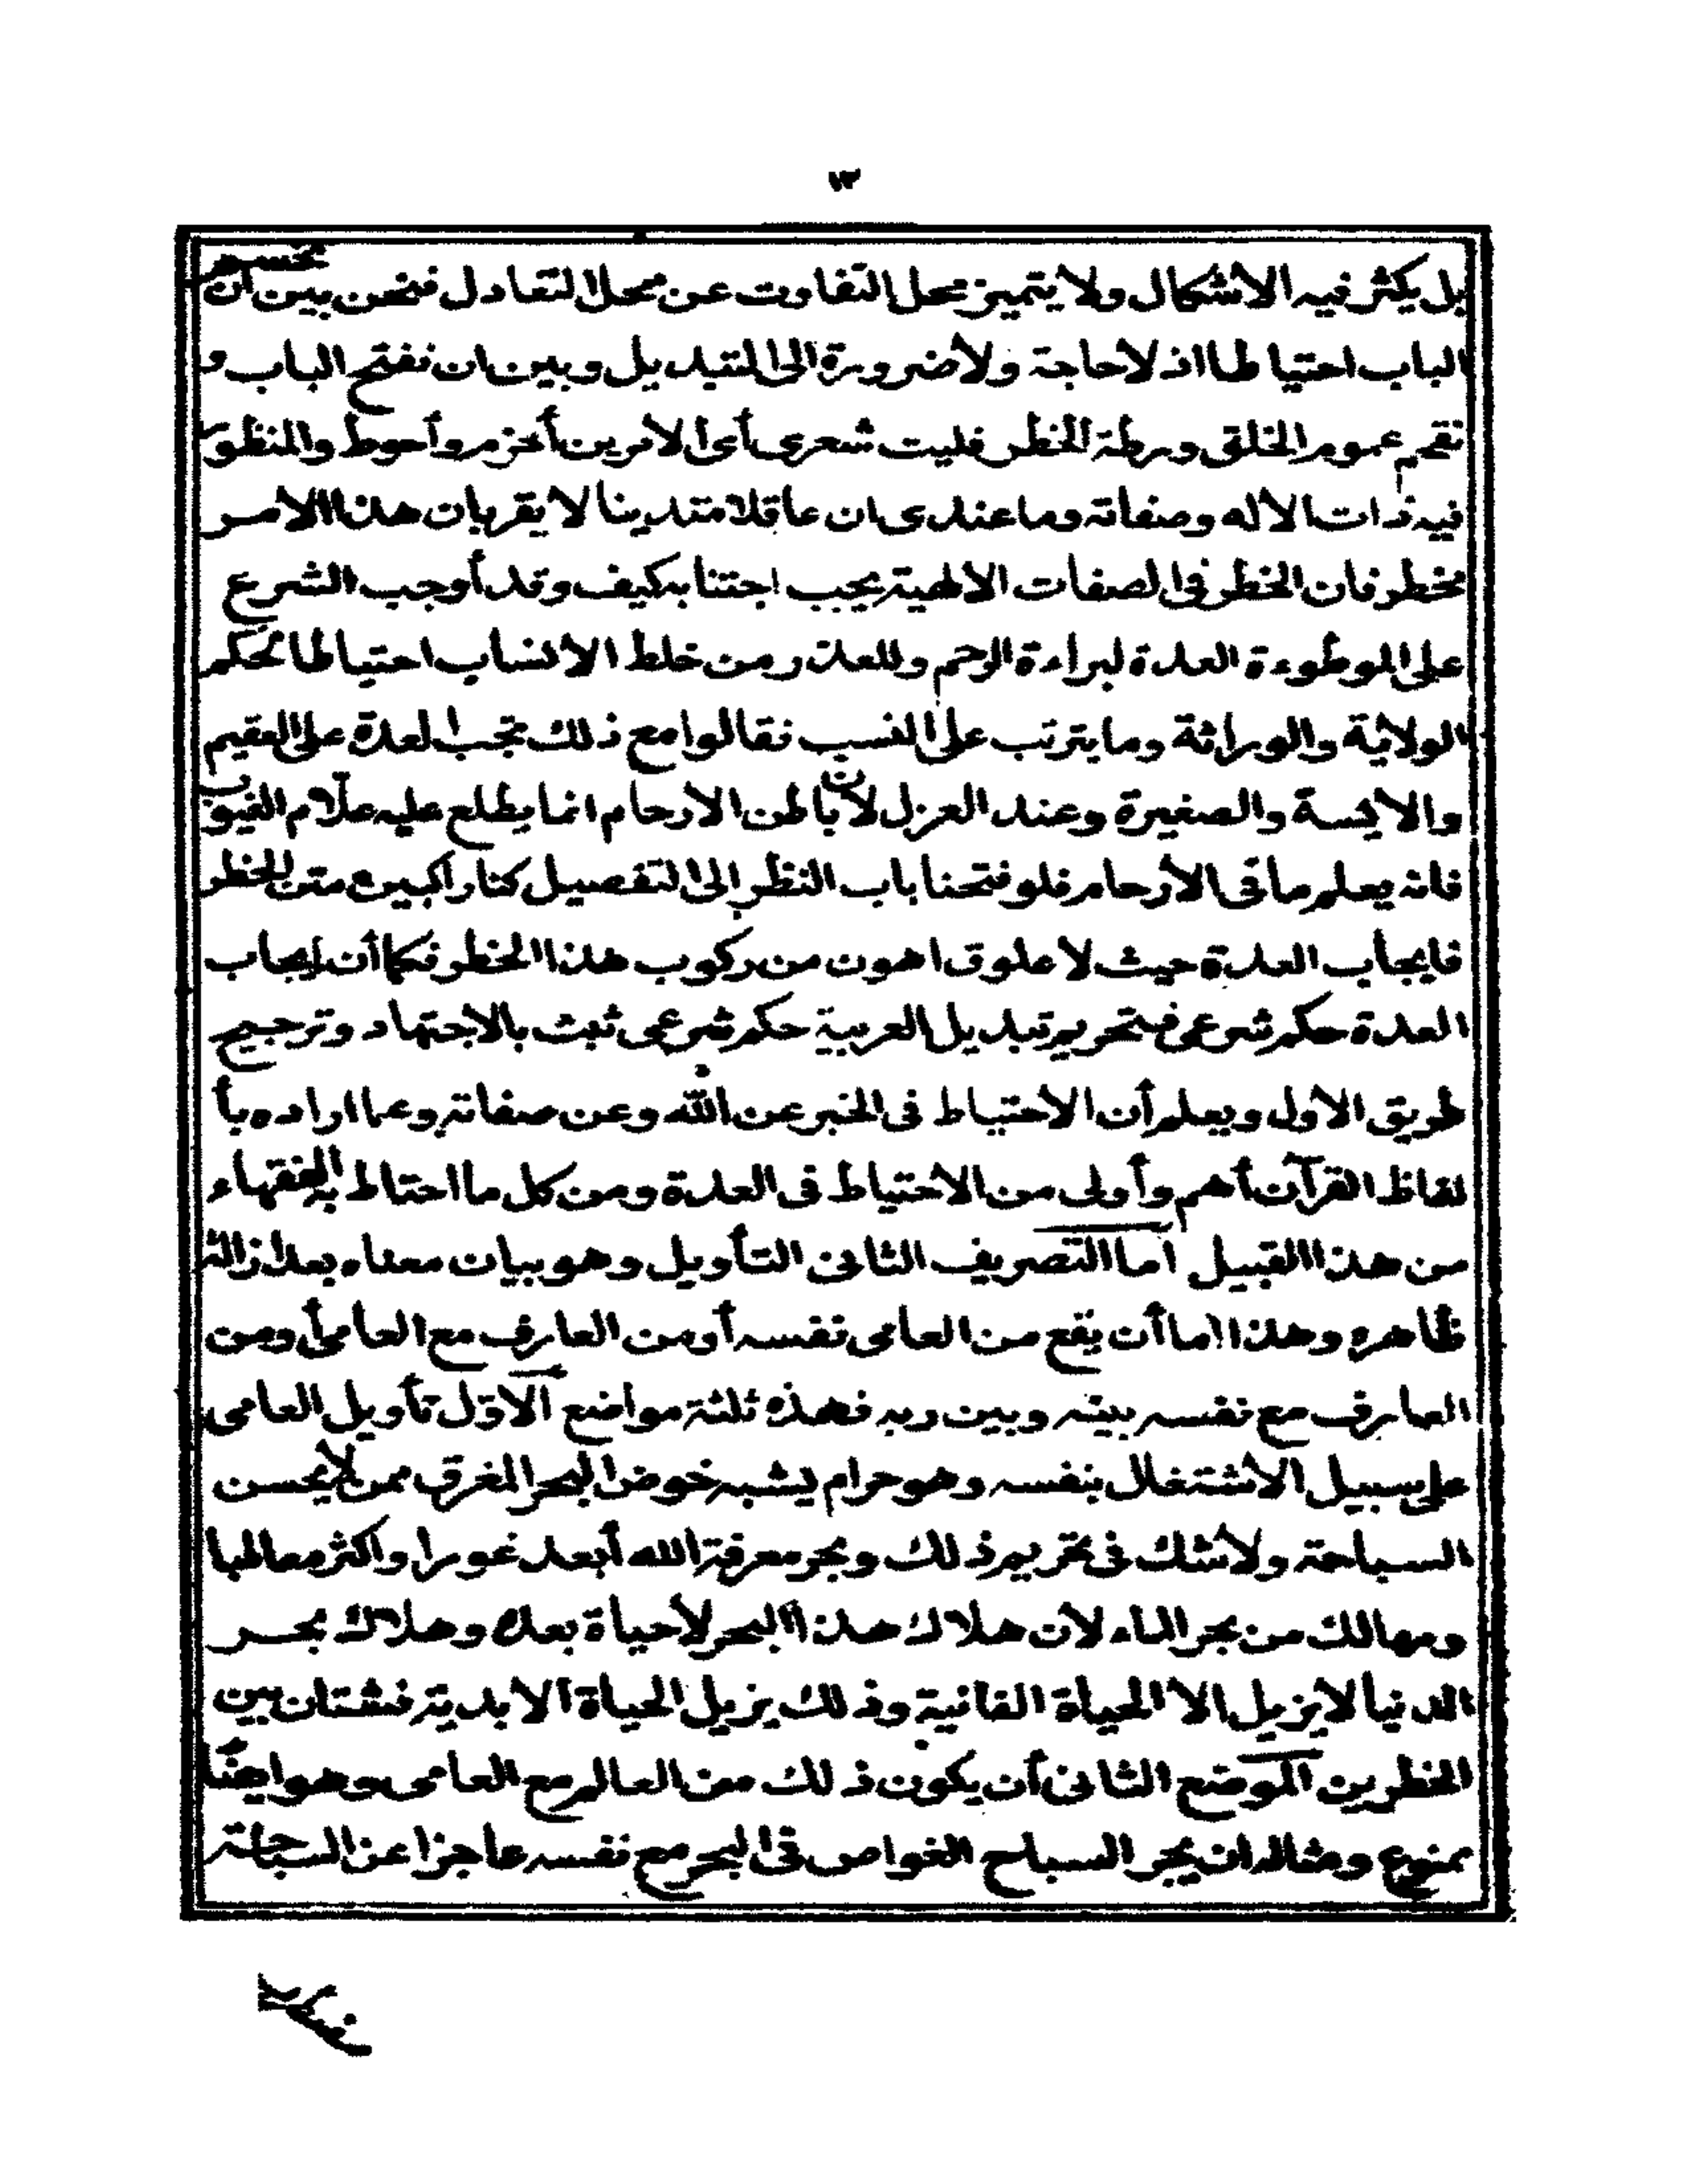 ١٣
بل يكثر فيه الاشكال ولا يتميز محل التفاوت عن محل التعادل فنحن بين ان نحسم
الباب احتياطا اذ لا حاجة ولا ضرورة الى التبديل وبين ان نفتح الباب و
نقحم عموم الخلق ورطة الخطر فليت شعرى أى الامرين أحزم وأحوط والمنظور
فيه ذات الاله وصفاته وما عندى ان عاقلا متدينا لا يقر بان هذا الامر
مخطر فان الخطر فى الصفات الالهية يجب اجتنابه كيف وقد أوجب الشرع
على الموطوءة العدة لبراءة الرحم وللحذر من خلط الانساب احتياطا لحكم
الولاية والوراثة وما يترتب على النسب فقالوا مع ذلك تجب العدة على العقيم
والايسة والصغيرة وعند العزل لان باطن الارحام انما يطلع عليه علّام الغيوب
فانه يعلم ما فى الأرحام فلو فتحنا باب النظر الى التفصيل كنا راكبين متن الخطر
فايجاب العدة حيث لا علوق اهون من ركوب هذا الخطر فكما أن إيجاب
العدة حكم شرعى فتحريم تبديل العربية حكم شرعى ثبت بالاجتهاد وترجيح
طريق الاول ويعلم أن الاحتياط فى الخبر عن الله وعن صفاته وعما اراده بأ
لفاظ القرآن أهم وأولى من الاحتياط فى العدة ومن كل ما احتاط به الفقهاء
من هذا القبيل اما التصريف الثانى التأويل وهو بيان معناه بعد ازالة
ظاهره وهذا اما أن يقع من العامى نفسه أو من العارف مع العامى أو من
العارف مع نفسه بينه وبين ربه فهذه ثلثة مواضع الاوّل تأويل العامى
على سبيل الاشتغال بنفسه وهو حرام يشبه خوض البحر المغرق ممن لا يحسن
السباحة ولا شك فى تحريم ذلك وبحر معرفة الله أبعد غورا واكثر معاطبا
ومهالك من بحر الماء لان هلاك هذا البحر لا حياة بعده وهلاك بحر
الدنيا لا يزيل الا الحياة الفانية وذلك يزيل الحياة الابدية فشتان بين
الخطرين الموضع الثانى أن يكون ذلك من العالم مع العامى وهو ايضًا
ممنوع ومثاله ان يجر السباح الغواص فى البحر مع نفسه عاجزا عن السباحة